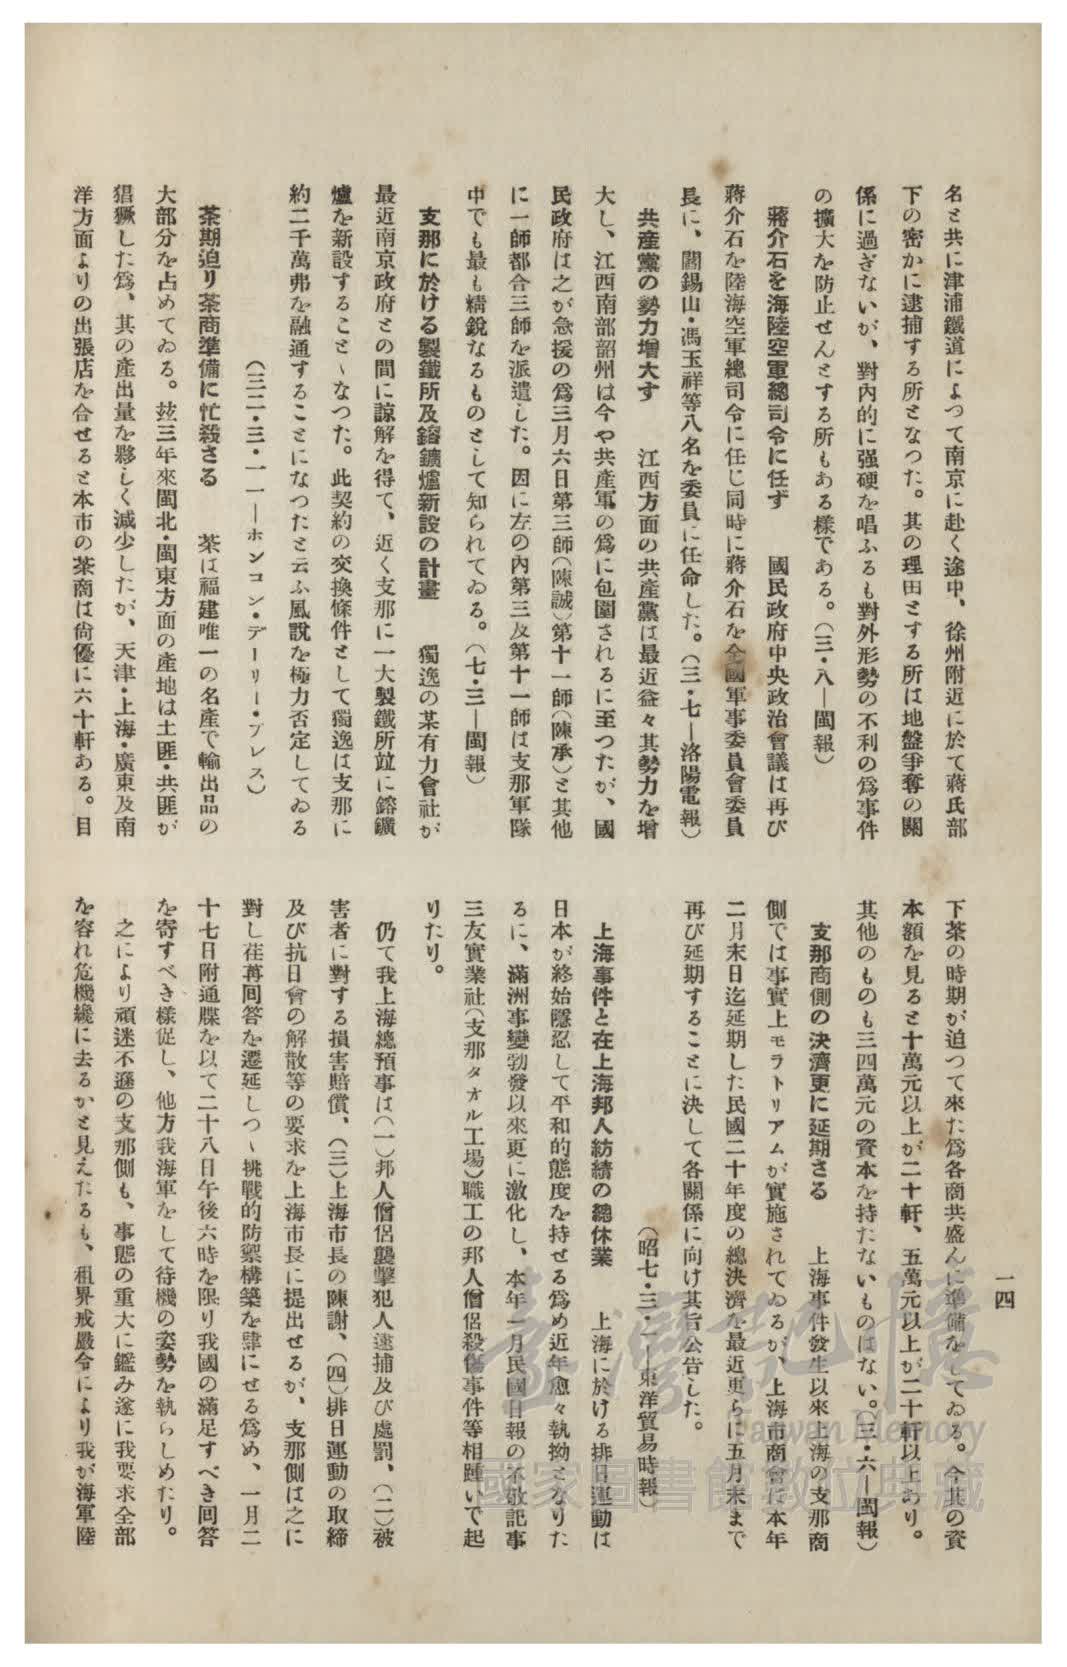 一四
名と共に津浦鐵道によつて南京に赴く途中、徐州附近に於て蔣氏部
下の密かに逮捕する所となつた。其の理由とする所は地盤爭奪の關
係に過ぎないが、對內的に强硬を唱ふるも對外形勢の不利の爲事件
の擴大を防止せんとする所もある樣である。（三・八―閩報）
蔣介石を海陸空軍總司令に任ず　國民政府中央政治會議は再び
蔣介石を陸海空軍總司令に任じ同時に蔣介石を全國軍事委員會委員
長に、閻錫山・馮玉祥等八名を委員に任命した。（三・七―洛陽電報）
共產黨の勢力增大す　江西方面の共產黨は最近益々其勢力を增
大し、江西南部韶州は今や共產軍の爲に包圍されるに至つたが、國
民政府は之が急援の爲三月六日第三師（陳誠）第十一師（陳承）と其他
に一師都合三師を派遣した。因に左の內第三及第十一師は支那軍隊
中でも最も精銳なるものとして知られてゐる。（七・三―閩報）
支那に於ける製鐵所及鎔鑛爐新設の計畫　獨逸の某有力會社が
最近南京政府との間に諒解を得て、近く支那に一大製鐵所竝に鎔鑛
爐を新設することゝなつた。此契約の交換條件として獨逸は支那に
約二千萬弗を融通することになつたと云ふ風說を極力否定してゐる
（三二・三・一一―ホンコン・デーリー・プレス）
茶期迫り茶商準備に忙殺さる　茶は福建唯一の名產で輸出品の
大部分を占めてゐる。玆三年來閩北・閩東方面の產地は土匪・共匪が
猖獗した爲、其の產出量を夥しく減少したが、天津・上海・廣東及南
洋方面よりの出張店を合せると本市の茶商は尙優に六十軒ある。目
下茶の時期が迫つて來た爲各商共盛んに準備をしてゐる。今其の資
本額を見ると十萬元以上が二十軒、五萬元以上が二十軒以上あり。
其他のものも三四萬元の資本を持たないものはない。（三・六―閩報）
支那商側の決濟更に延期さる　上海事件發生以來上海の支那商
側では事實上モラトリアムが實施されてゐるが、上海市商會は本年
二月末日迄延期した民國二十年度の總決濟を最近更らに五月末まで
再び延期することに決して各關係に向け其旨公告した。
（昭七・三・一―東洋貿易時報）
上海事件と在上海邦人紡績の總休業　上海に於ける排日運動は
日本が終始隱忍して平和的態度を持せる爲め近年愈々執拗となりた
るに、滿洲事變勃發以來更に激化し、本年一月民國日報の不敬記事
三友實業社（支那タオル工場）職工の邦人僧侶殺傷事件等相踵いで起
りたり。
仍て我上海總預事は（一）邦人僧侶襲擊犯人逮捕及び處罰、（二）被
害者に對する損害賠償、（三）上海市長の陳謝、（四）排日運動の取締
及び抗日會の解散等の要求を上海市長に提出せるが、支那側は之に
對し荏苒回答を遷延しつゝ挑戰的防禦構築を肆にせる爲め、一月二
十七日附通牒を以て二十八日午後六時を限り我國の滿足すべき回答
を寄すべき樣促し、他方我海軍をして待機の姿勢を執らしめたり。
之により頑迷不遜の支那側も、事態の重大に鑑み遂に我要求全部
を容れ危機纔に去るかと見えたるも、租界戒嚴令により我が海軍陸
臺灣記憶
Taiwan Memory
國家圖書館數位典藏